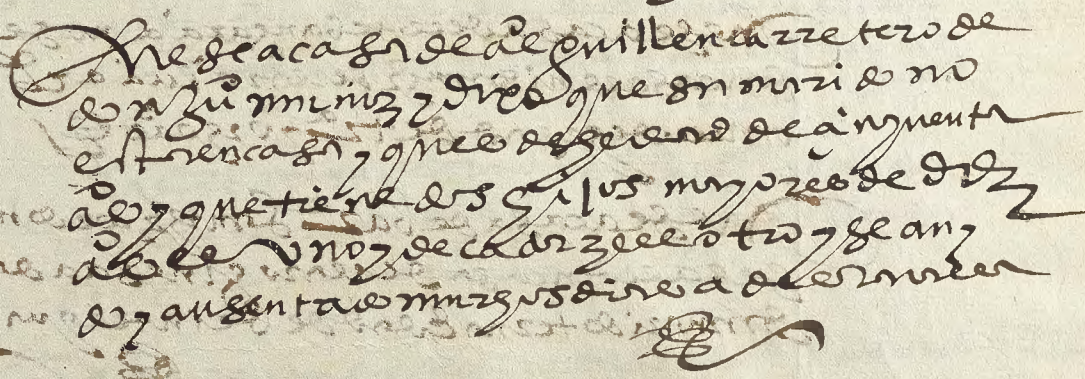 fue se a casa de al° guillen carretero de
don Ju° muñoz y dixo que su marido no
esta en casa y que es de hedad de cinquenta
a°s y que tiene dos hijos mayores de
a°s el uno y de catorze el otro y se an y
do y ausentado muchos dias a